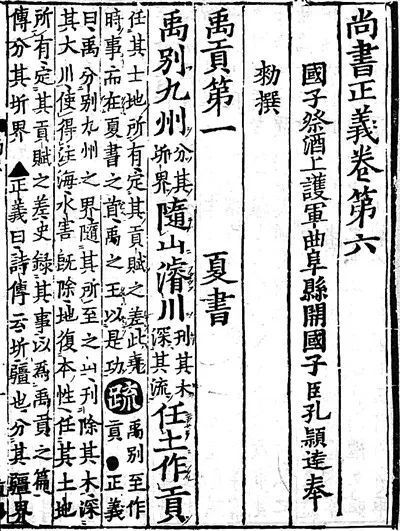 尚書正義卷第六
國子祭酒上護軍曲阜縣開國子臣孔穎達奉
勑撰
禹貢第一 夏書
禹別九州分其圻界隨山濬川刊其木深其流任土作貢
任其土地所有定其貢賦之差此堯
時事而在夏書之首禹之王以是功
疏
禹別至作
貢●正義
曰禹分別九州之界隨其所至之山刊除其木深
其大川使得注海水害旣除地復本性任其土地
所有定其貢賦之差史錄其事以爲禹貢之篇
傳分其圻界▲正義曰詩傳云圻疆也分其疆界